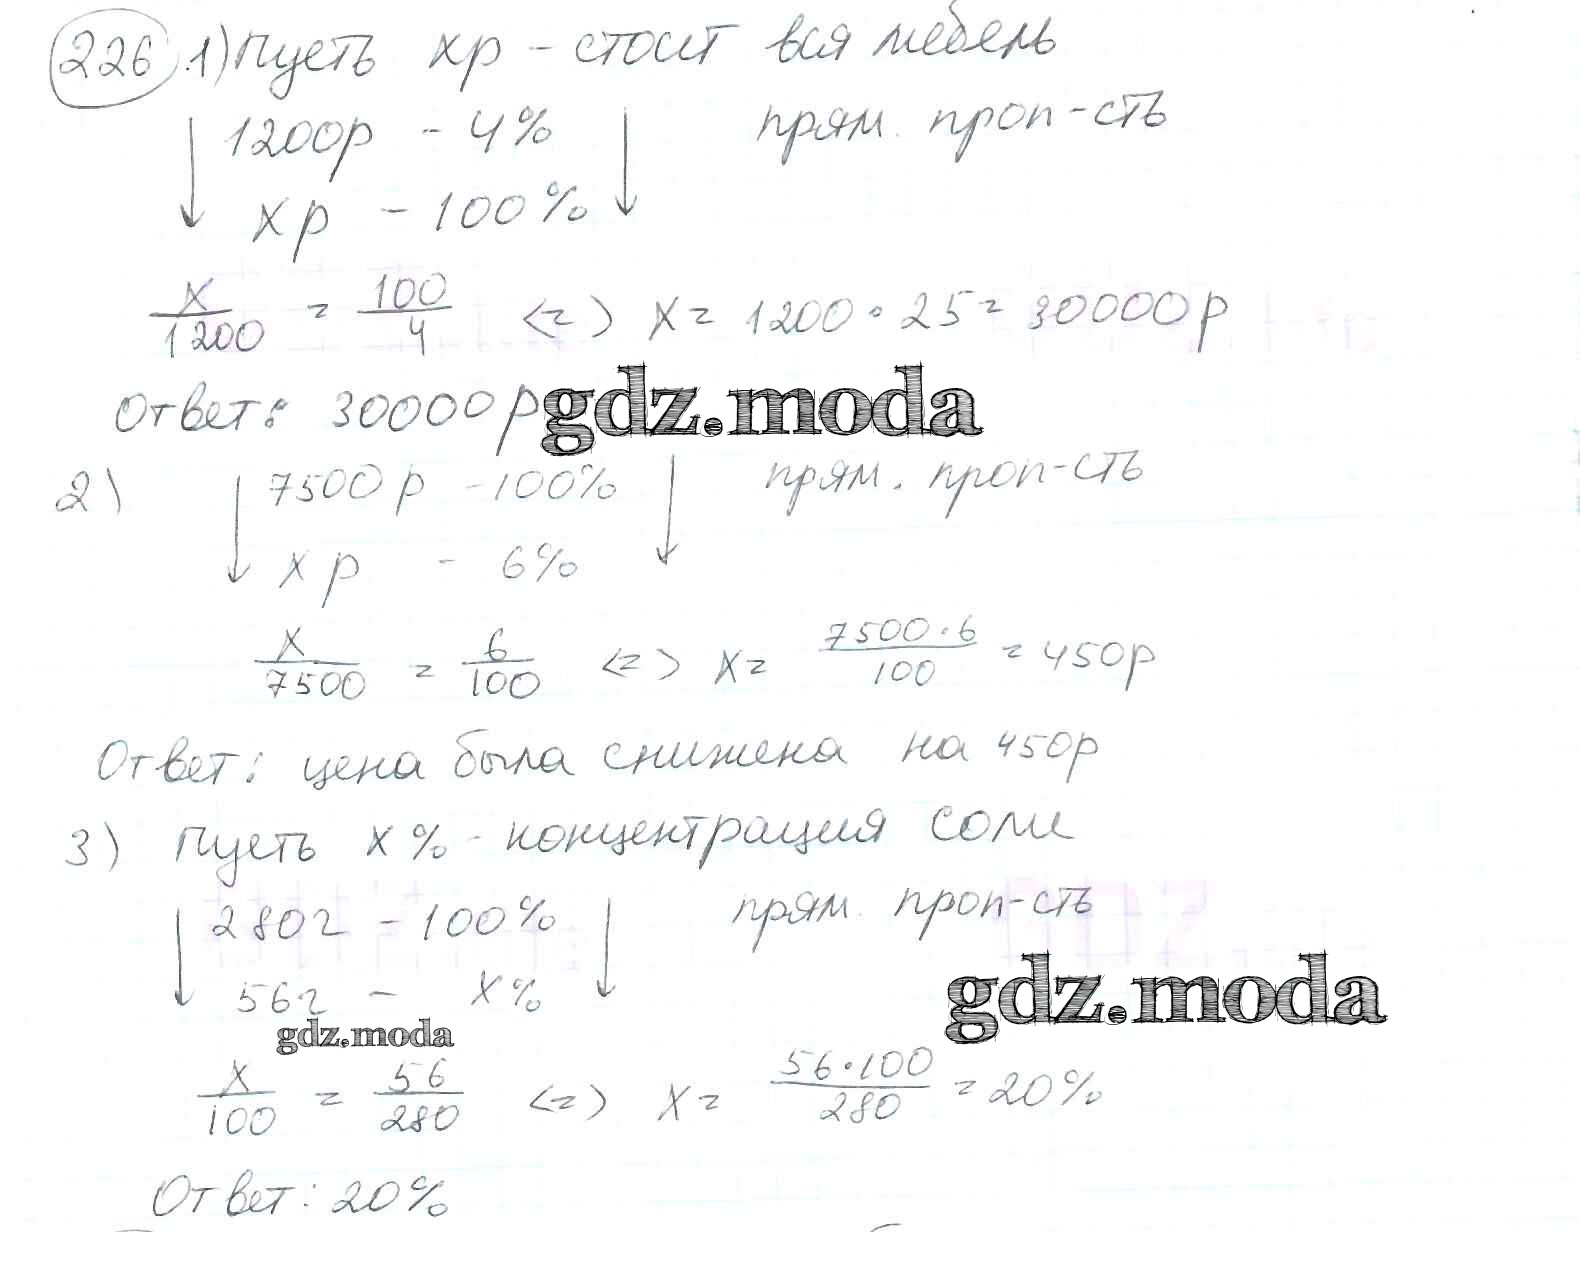 226 1) Пусть xр - стоит вся мебель
1200р - 4% прям. проп-сть
xр - 100%
x/1200 = 100/4 <=> x = 1200 · 25 = 30000р
Ответ: 30000р gdz.moda
2) 7500р - 100% прям. проп-сть
xр - 6%
x/7500 = 6/100 <=> x = 7500·6/100 = 450р
Ответ: цена была снижена на 450р
3) Пусть x% - концентрация соли
280г - 100% прям. проп-сть
56г - x%
gdz.moda
gdz.moda
x/100 = 56/280 <=> x = 56·100/280 = 20%
Ответ: 20%